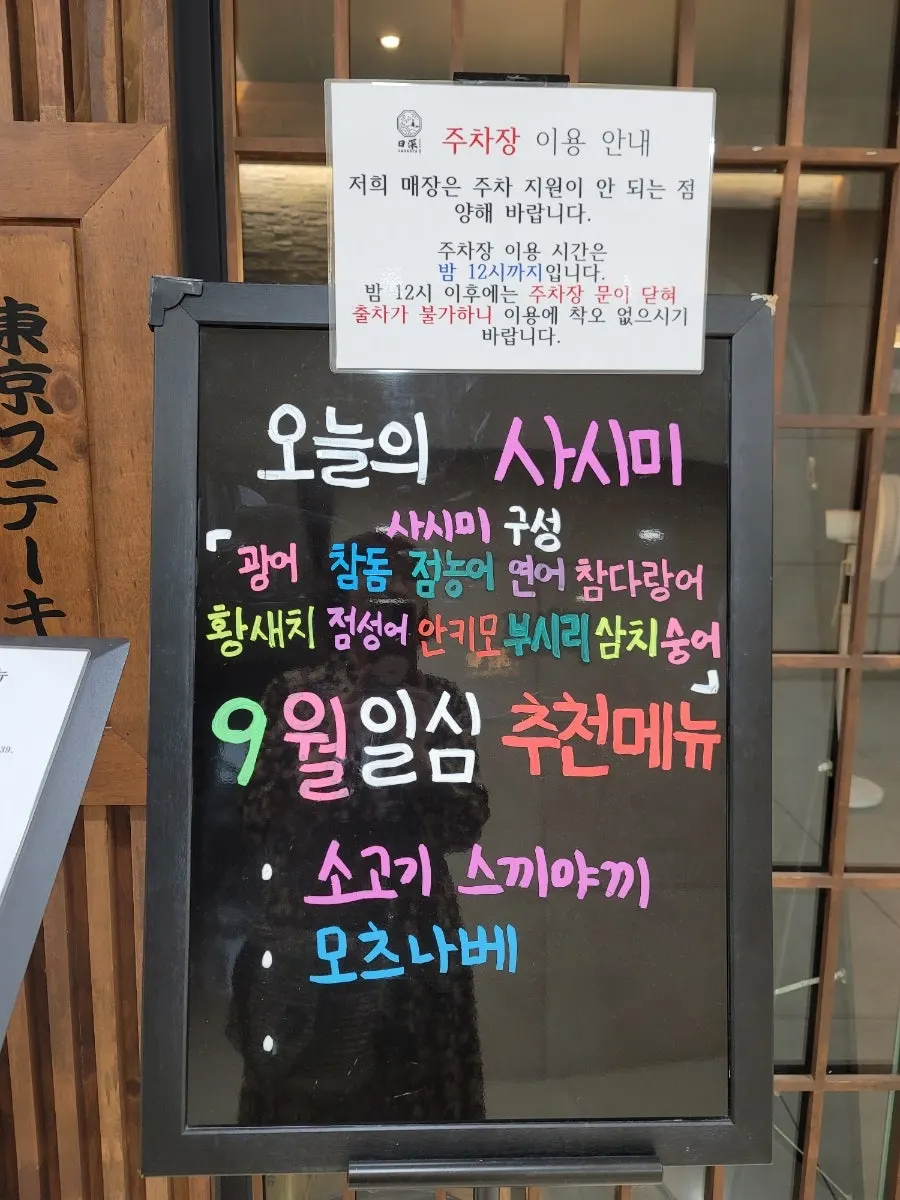 日深
주차장 이용 안내
저희 매장은 주차 지원이 안 되는 점
양해 바랍니다.
주차장 이용 시간은
밤 12시까지입니다.
밤 12시 이후에는 주차장 문이 닫혀
출차가 불가하니 이용에 착오 없으시기
바랍니다.
오늘의 사시미
사시미 구성
「광어 참돔 점농어 연어 참다랑어
황새치 점성어 안키모 부시리 삼치 숭어」
9월 일심 추천메뉴
· 소고기 스끼야끼
· 모츠나베
·
東京ステーキ
39.